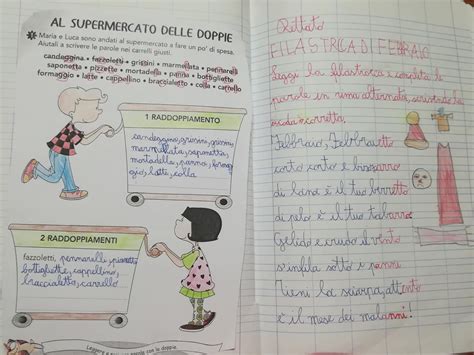 AL SUPERMERCATO DELLE DOPPIE
Maria e Luca sono andati al supermercato a fare un po' di spesa.
Aiutali a scrivere le parole nei carrelli giusti.
candeggina • fazzoletti • grissini • marmellata • pennarelli
saponetta • pizzette • mortadella • panna • bottigliette
formaggio • latte • cappellino • braccialetto • colla • carrello
1 RADDOPPIAMENTO
candeggina, grissini,
marmellata, saponetta,
mortadella, panna,
latte, colla
2 RADDOPPIAMENTI
fazzoletti, pennarelli,
bottigliette, cappellino,
braccialetto, carrello
Leggere e con le doppie.
Dettato
FILASTROCA DI FEBRAIO
Leggi la filastrocca e completa le
parole in rima alternata,
Febbraio, Febbraietto
corto corto e bizzarro
di lana è il tuo berretto
di pelo è il tuo tabarro
Gelido e crudo il vento
s'infila sotto i panni
Tieni la sciarpa, attento
è il mese dei malanni!